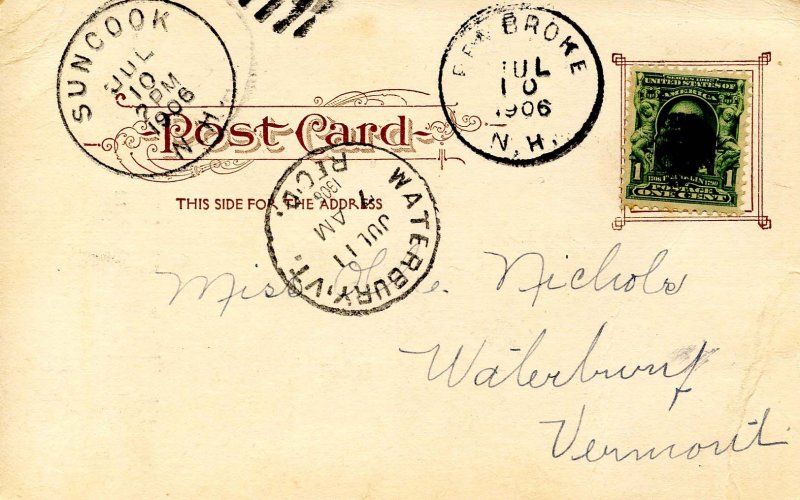 SUNCOOK
JUL
10
2 PM
1906
N.H.
PEMBROKE
JUL
10
1906
N.H.
SERIES 1902
UNITED STATES OF
AMERICA
1 1
1706 FRANKLIN 1790
POSTAGE
ONE CENT
Post Card
THIS SIDE FOR THE ADDRESS
WATERBURY, VT.
JUL 11
1 AM
1906
REC'D.
Miss Nichols
Waterbury
Vermont